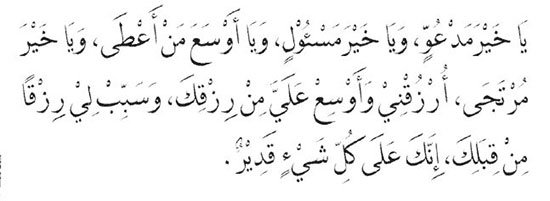 يَا خَيْرَ مَدْعُوٍّ، وَيَا خَيْرَ مَسْئُولٍ، وَيَا أَوْسَعَ مَنْ أَعْطَى، وَيَا خَيْرَ
مُرْتَجَى، أُرْزُقْنِيْ وَأَوْسِعْ عَلَيَّ مِنْ رِزْقِكَ، وَسَبِّبْ لِيْ رِزْقًا
مِنْ قِبَلِكَ، إِنَّكَ عَلَى كُلِّ شَيْءٍ قَدِيْرٌ.